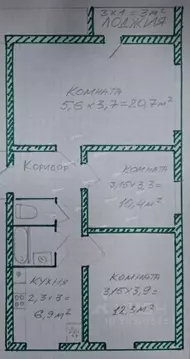 3×1=3м²
ЛОДЖИЯ
КОМНАТА
5,6×3,7=20,7м²
КОРИДОР
КОМНАТА
3,15×3,3=
10,4м²
КУХНЯ
2,3×3=
6,9м²
КОМНАТА
3,15×3,9=
12,3м²